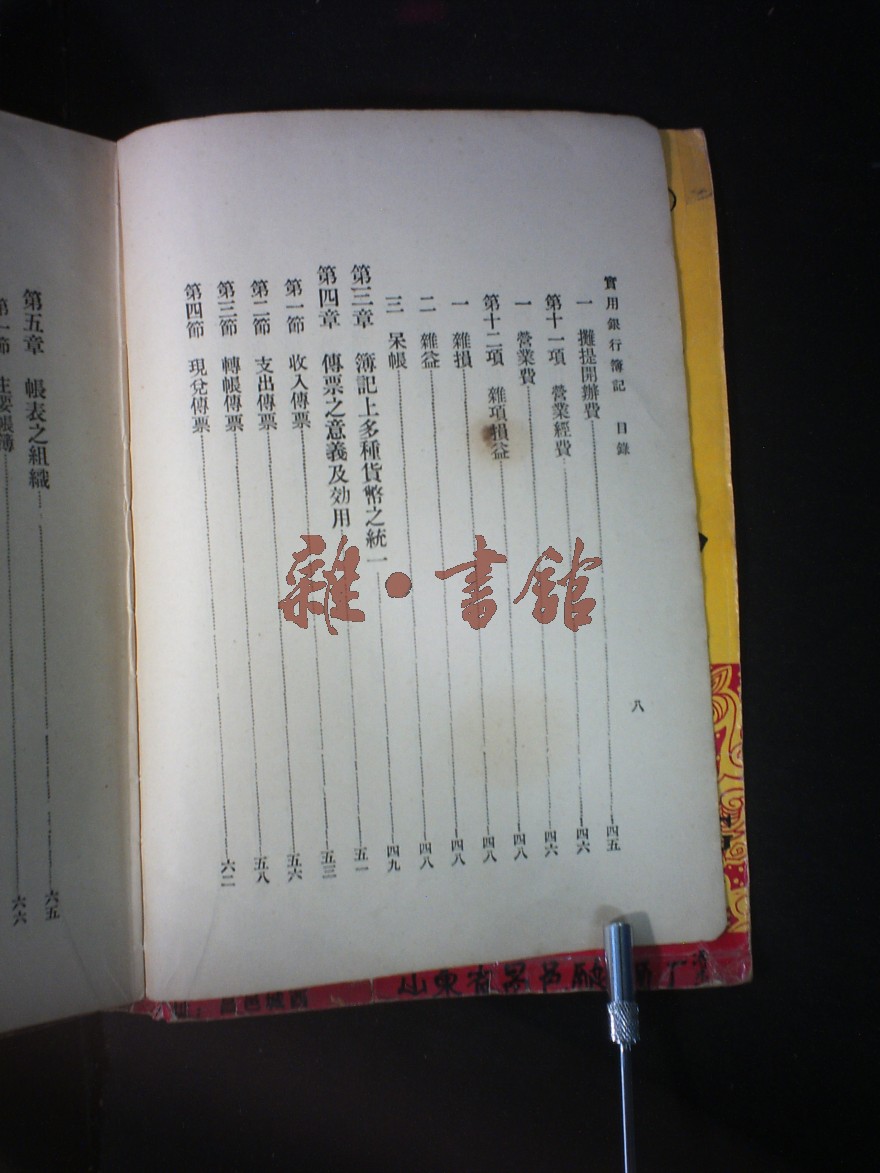 實用銀行簿記 目錄 八
一 攤提開辦費……四五
第十一項 營業經費……四六
一 營業費……四六
第十二項 雜項損益……四八
一 雜損……四八
二 雜益……四八
三 呆帳……四八
第三章 簿記上多種貨幣之統一……四九
第四章 傳票之意義及効用……五一
第一節 收入傳票……五三
第二節 支出傳票……五六
第三節 轉帳傳票……五八
第四節 現兌傳票……六二
第五章 帳表之組織……六五
第一節 主要帳簿……六六
雜·書館
山東省